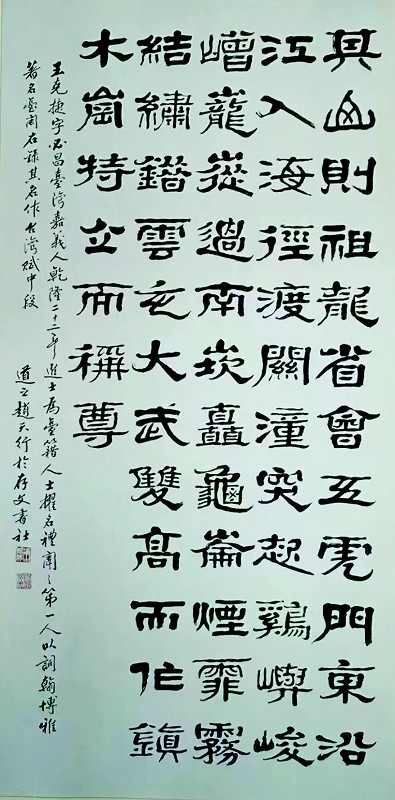 其山則祖龍省會五虎門東沿
江入海徑渡關潼突起鷄嶼峻
嶒巃嵸過南崁矗龜崙煙霏霧
結繡錯雲屯大武雙高而作鎮
木崗特立而稱尊
王克捷字必昌臺灣嘉義人乾隆二十二年進士為臺籍人士擢名禮闈之第一人以詞翰博雅
著名臺閩右錄其名作台灣賦中段
道之趙天行於存文書社